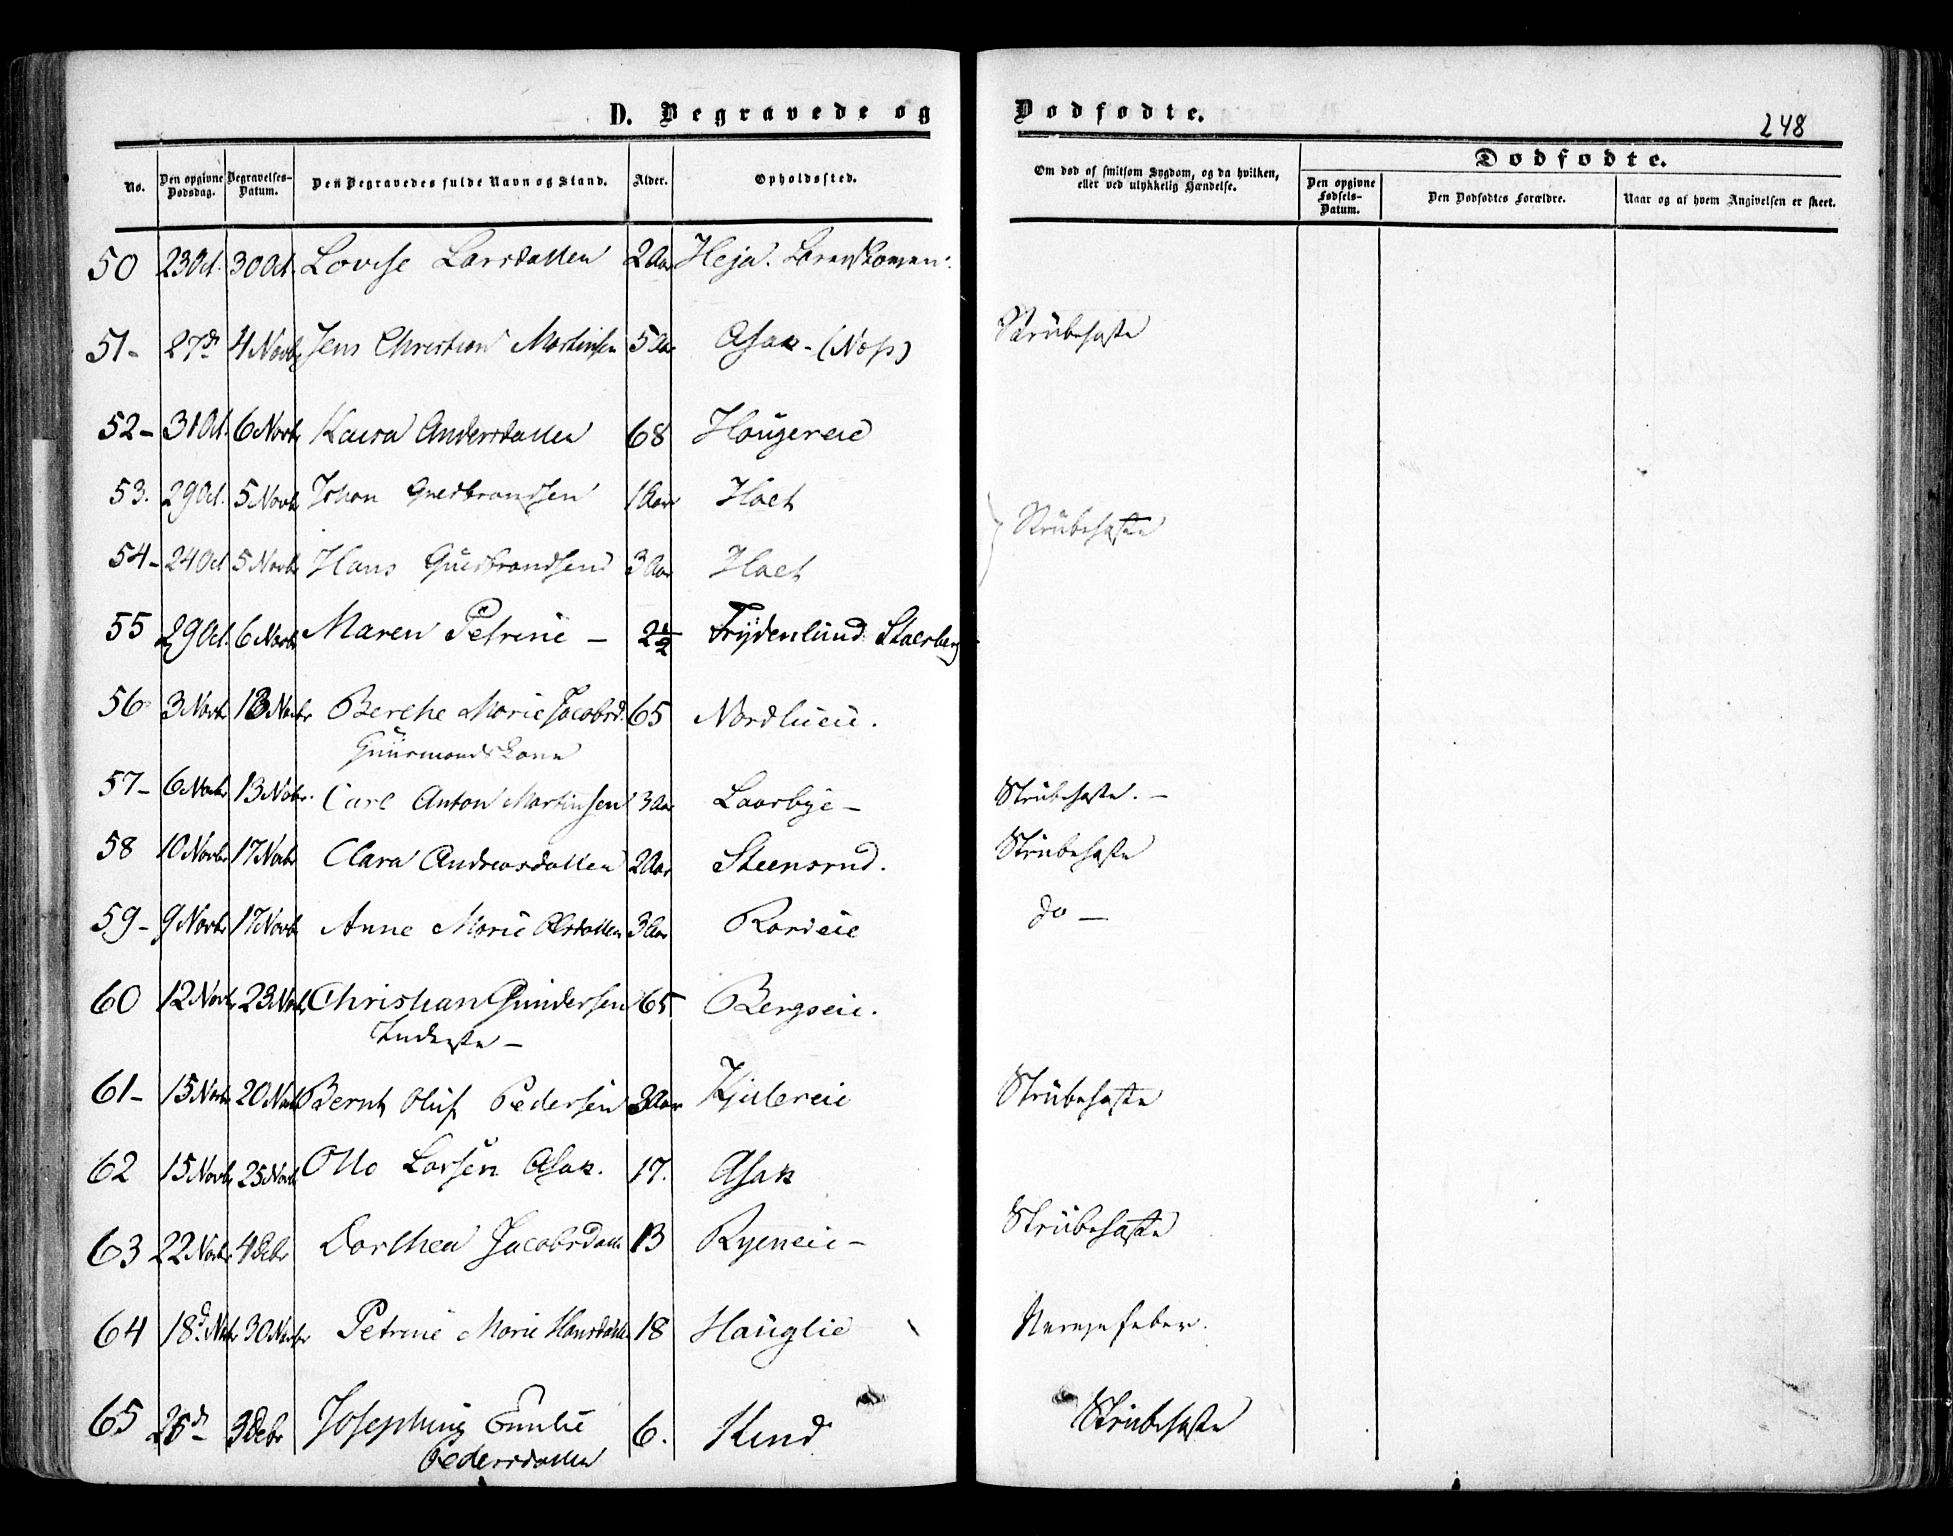 D. Begravede og Dodfodte.
248
Dodfodte.
No. Den opgivne Dodsdag. Begravelses-Datum. Den Begravedes fulde Navn og Stand. Alder. Opholdssted. Om død af smitsom Sygdom, og da hvilken, eller ved ulykkelig Hændelse. Den opgivne Fødsels-Datum. Den Dodfodtes Forældre. Naar og af hvem Angivelsen er skeet.
50 23 Oct. 30 Oct. Lovise Larsdatter 2 Aar Heja.
51- 27 d 4 Novbr Jens Christian Martinsen 5 Aar Asak - Strübehoste
52- 31 Oct. 6 Novbr Andersdatter 68 Haügereie
53. 29 Oct. 5 Novbr Johan Guldbrandsen 1 Aar Holt
54- 24 Oct 5 Novbr Hans Guldbrandsen 3 Aar Holt Strübehoste
55 29 Oct. 6 Novbr Maren Petrine - 2½ Frydenlund
56 3 Novbr 13 Novbr Berthe Marie Jacobsd. 65
Guurmandskone
57- 6 Novbr 13 Novbr. Carl Anton Martinsen 3 Aar Laarbye - Strübehoste. -
58 10 Novbr 17 Novbr Clara Andreasdatter 2 Aar Steensrud. Strübehoste
59- 9 Novbr 17 Novbr Anne Marie Olsdatter 3 Aar do -
60 12 Novbr 23 Novbr Christian Gundersen 65 Bergseie.
Inderste -
61- 15 Novbr 20 Novbr Bernt Oluf Pedersen 3 Aar Strübehoste
62 15 Novbr 25 Novbr Otto Larsen Asak. 17. Asak
63 22 Novbr 4 Debr Dorthea Jacobsdatt 13 Ryeneie - Strübehoste
64 18 d Novbr 30 Novbr Petrine Marie Hansdatter 18 Hauglie Nervefeber.
65 25 d - 3 Debr Josephine Emilie 6. Kind Strübehoste
Pedersdatter